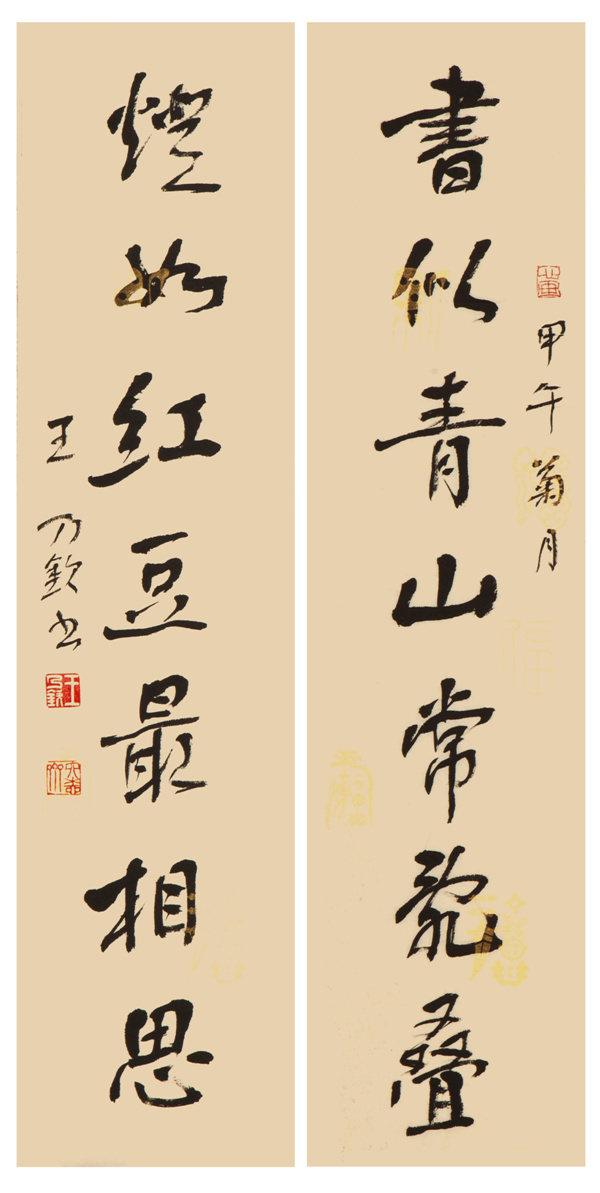 甲午菊月
書似青山常亂叠
燈如紅豆最相思
王乃欽书